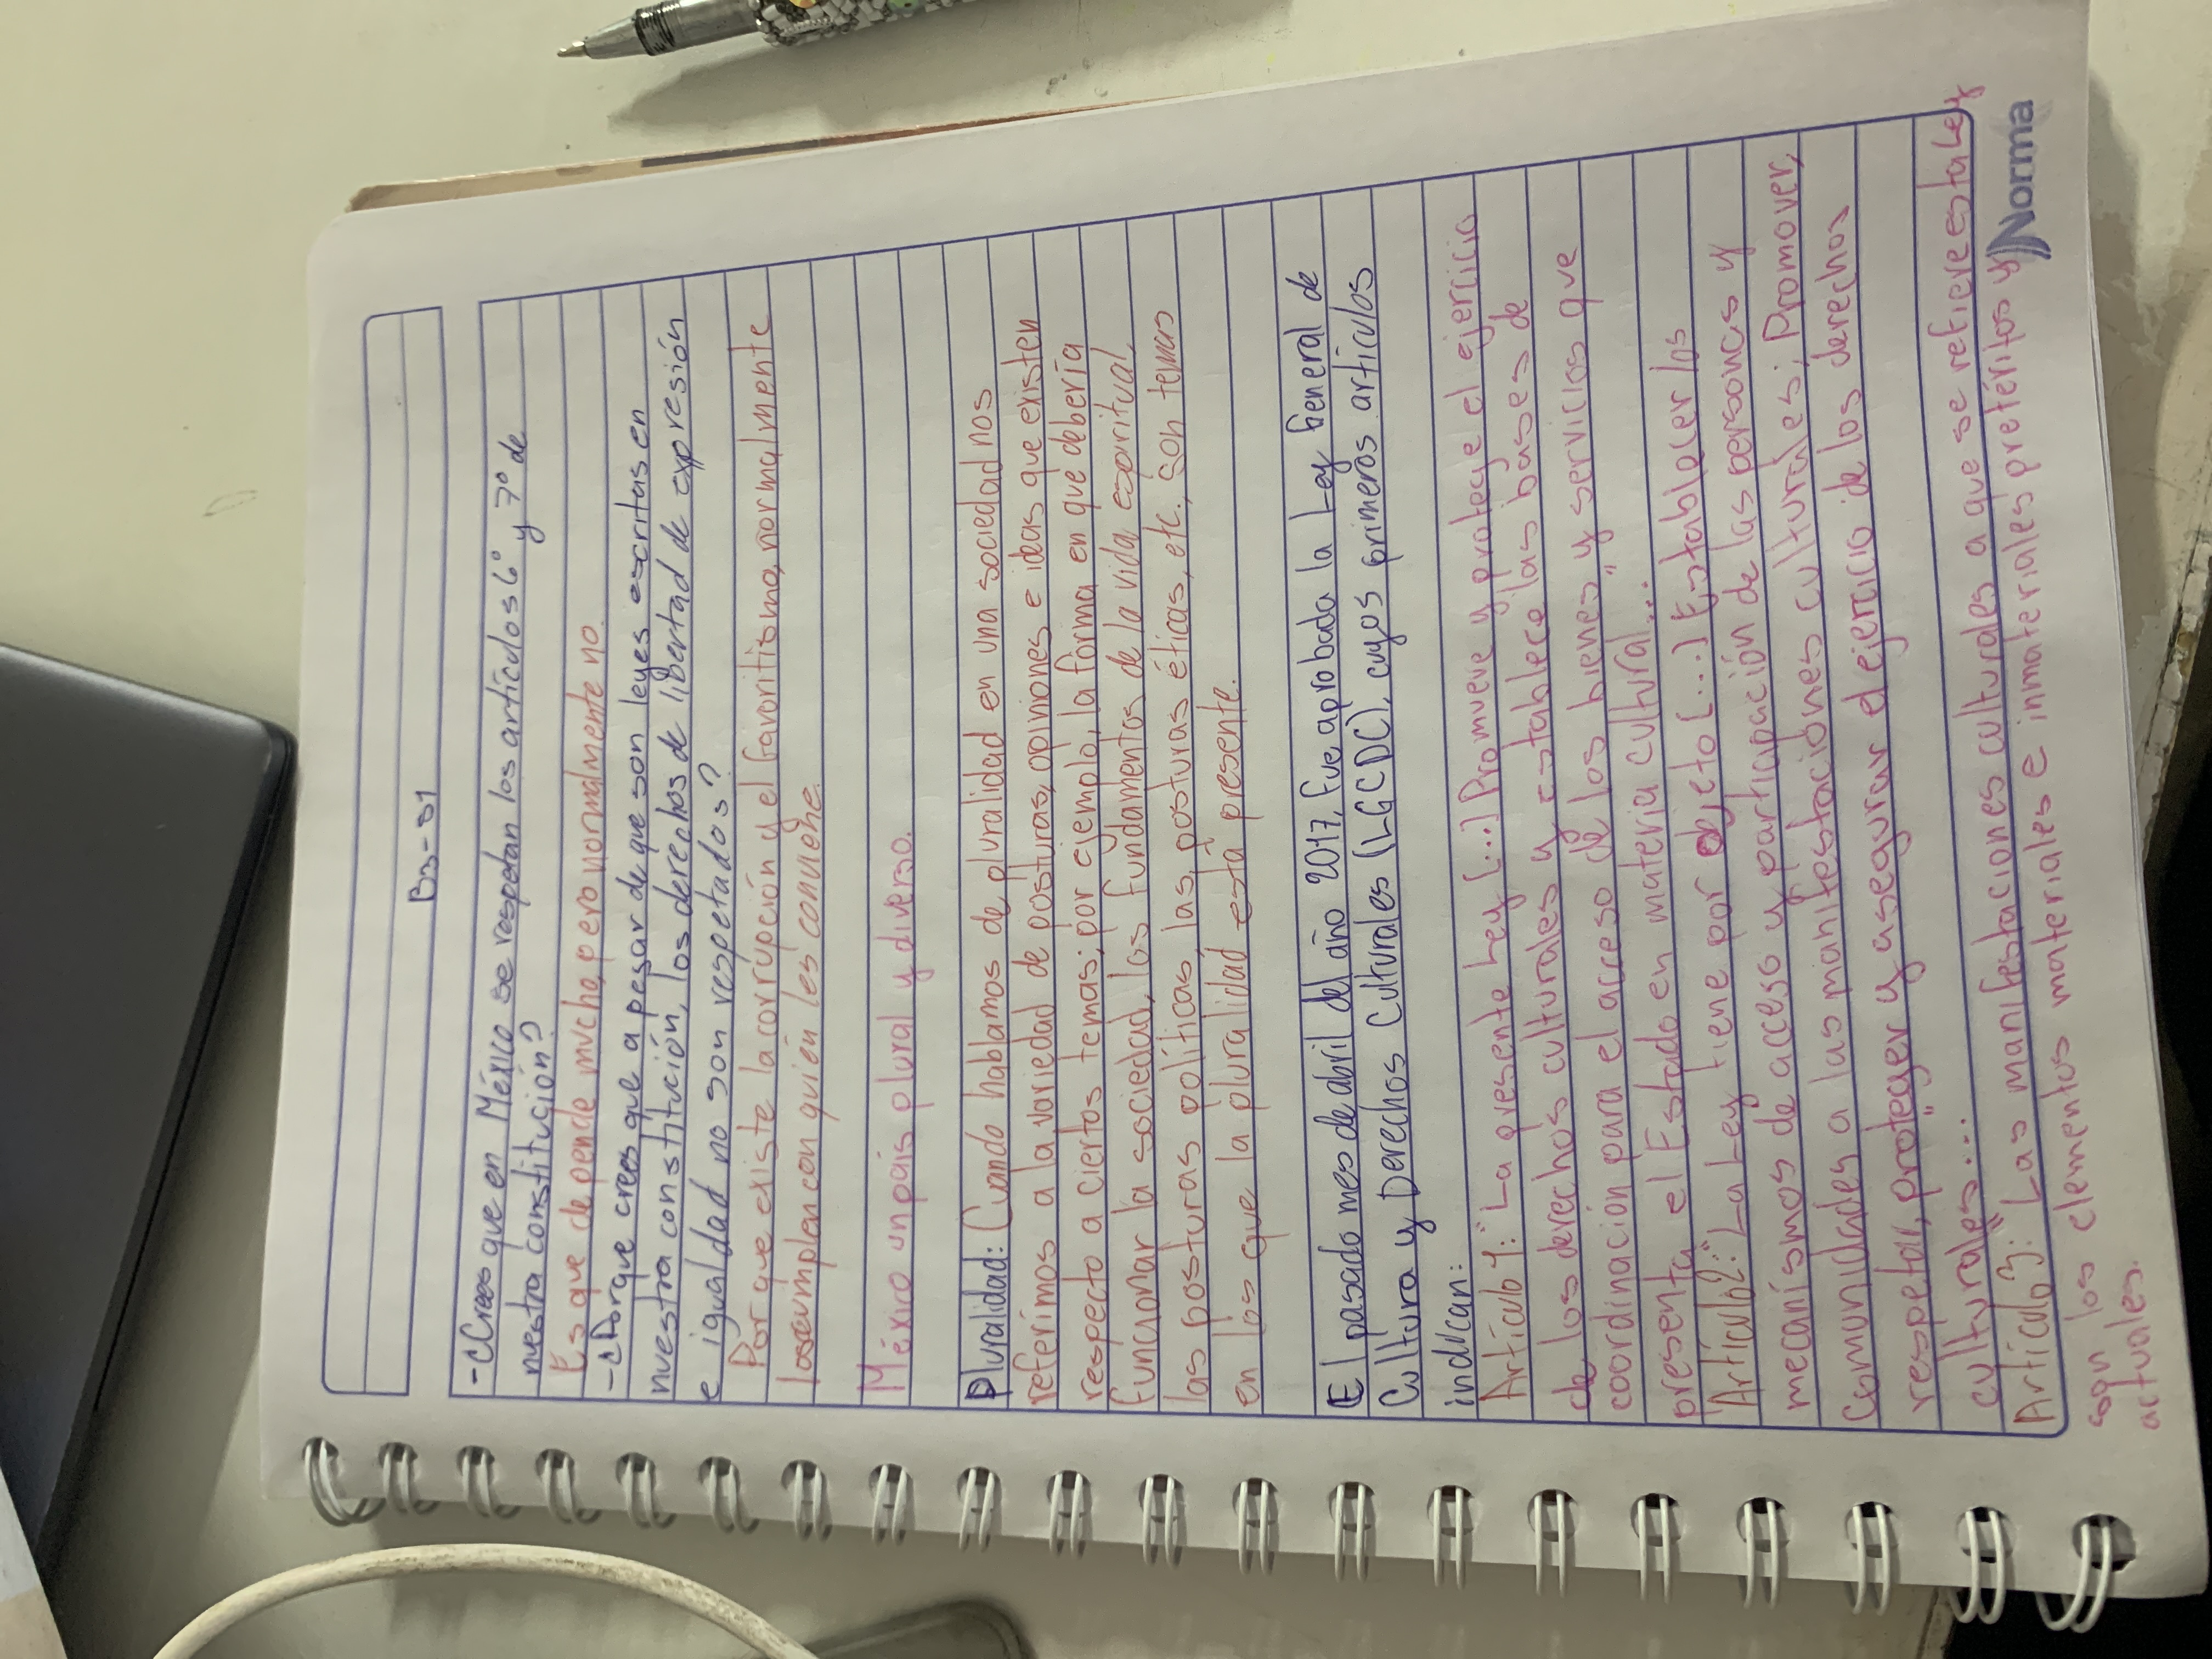 B3-S1
-¿Crees que en México se respetan los artículos 6° y 7° de
nuestra constitución?
Es que depende mucho, pero normalmente no.
-¿Porque crees que a pesar de que son leyes escritas en
nuestra constitución, los derechos de libertad de expresión
e igualdad no son respetados?
Por que existe la corrupción y el favoritismo, normalmente
los cumplen con quién les conviene.
México un país plural y diverso.
Pluralidad: Cuando hablamos de pluralidad en una sociedad nos
referimos a la variedad de posturas, opiniones e ideas que existen
respecto a ciertos temas; por ejemplo, la forma en que debería
funcionar la sociedad, los fundamentos de la vida espiritual,
las posturas políticas, las posturas éticas, etc., son temas
en los que la pluralidad está presente.
El pasado mes de abril del año 2017, fue aprobada la Ley General de
Cultura y Derechos Culturales (LGCDC), cuyos primeros artículos
indican:
Artículo 1: "La presente Ley [...] Promueve y protege el ejercicio
de los derechos culturales y establece las bases de
coordinación para el acceso de los bienes y servicios que
presenta el Estado en materia cultural..."
Artículo 2: "La Ley tiene por objeto [...] Establecer los
mecanísmos de acceso y participación de las personas y
comunidades a las manifestaciones culturales; Promover,
respetar, proteger y asegurar el ejercicio de los derechos
culturales..."
Artículo 3: "Las manifestaciones culturales a que se refiere esta Ley
son los elementos materiales e inmateriales pretéritos y
actuales.
Norma